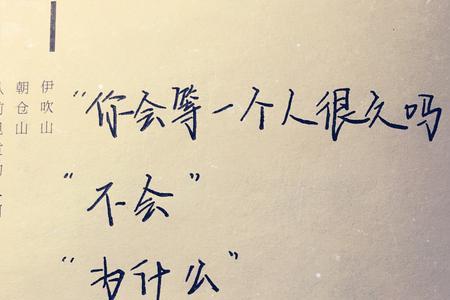 伊吹山
朝仓山
"你会等一个人很久吗
"不会"
"为什么"